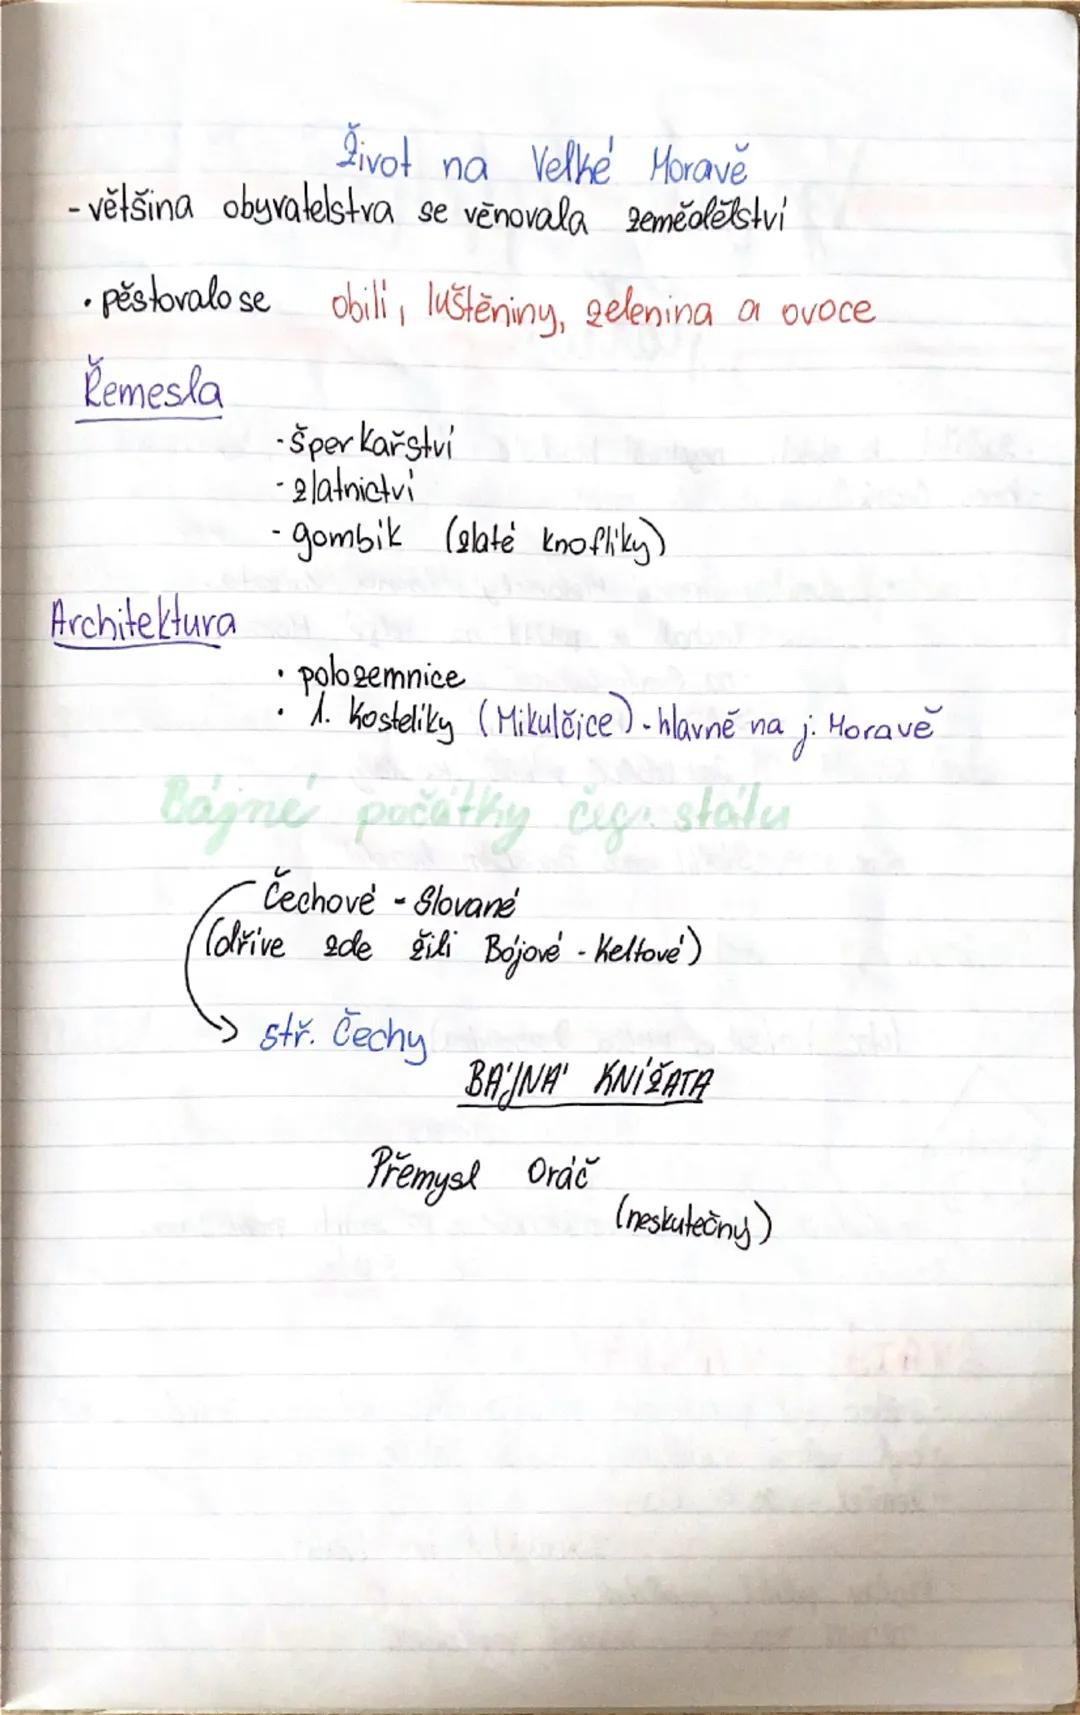 Život na Velké Moravě
- většina obyvatelstva se věnovala zemědělství
• pěstovalo se obilí, luštěniny, zelenina a ovoce
Řemesla
- šperkařství
- zlatnictví
- gombík (zlaté knoflíky)
Architektura
• polozemnice
• 1. kostelíky (Mikulčice) - hlavně na j. Moravě
Bájné počátky čes. státu
Čechové - Slované
(dříve zde žili Bójové - Keltové)
→ stř. Čechy
BÁJNÁ KNÍŽATA
Přemysl Oráč
(neskutečný)